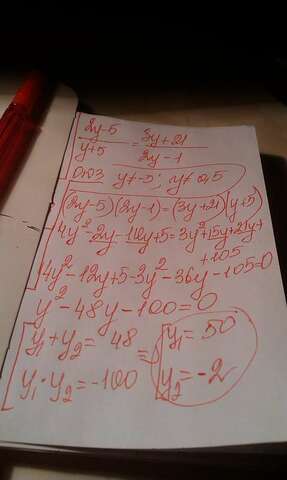 2y-5/y+5 = 3y+21/2y-1
ОДЗ y≠-5; y≠0,5
(2y-5)(2y-1)=(3y+21)(y+5)
4y²-2y-10y+5=3y²+15y+21y+
+105
4y²-12y+5-3y²-36y-105=0
y²-48y-100=0
y₁+y₂=48
y₁·y₂=-100
=>
y₁=50
y₂=-2